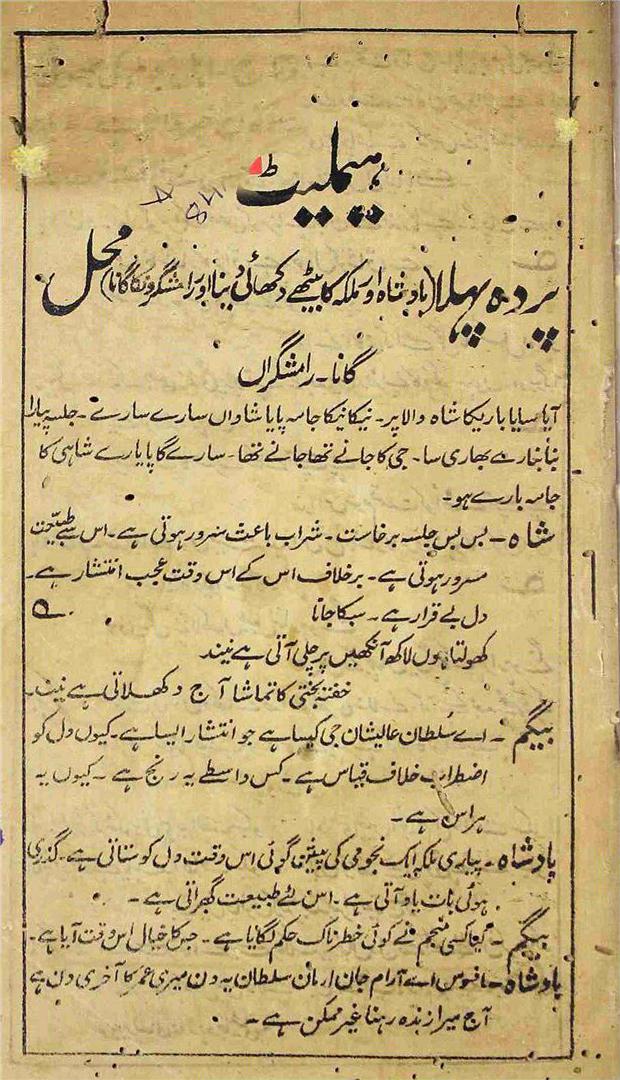 ہیملیٹ
پردہ پہلا (بادشاہ اور ملکہ کا بیٹھے دکھائی دینا اور رامشگرونکا گانا) محل
گانا۔ رامشگراں
آیا سایا باریکا شاہ والا پر۔ نیکا نیکا جامہ پایا شاواں سارے سارے۔ جلسہ پیارا
بھاری سا۔ جی کا جانے تھا جانے تھا۔ سارے گا پایارے شاہی کا
جامہ بارے ہو۔
شاہ۔ بس بس جلسہ برخاست۔ شراب باعث سرور ہوتی ہے۔ اس سے طبیعت
مسرور ہوتی ہے۔ برخلاف اس کے اس وقت عجب انتشار ہے۔
دل بے قرار ہے۔ سبکا جانا
کھولتا ہوں لاکھ آنکھیں پر چلی آتی ہے نیند
خفتہ بختی کا تماشا آج دکھلاتی ہے نیند۔
بیگم۔ اے سُلطان عالیشان جی کیسا ہے جو انتشار ایسا ہے۔ کیوں دل کو
اضطراب خلاف قیاس ہے۔ کس واسطے یہ رنج ہے۔ کیوں یہ
ہراس ہے۔
پادشاہ۔ پیاری ملکہ ایک نجومی کی پیشین گوئی اس وقت دل کو ستاتی ہے۔ گذری
ہوئی بات یاد آتی ہے۔ اس لئے طبیعت گھبراتی ہے۔
بیگم۔ کیا کسی منجم نے کوئی خطرناک حکم لگایا ہے۔ جس کا خیال اس وقت آیا ہے۔
پادشاہ۔ افسوس اے آرام جان ارمان سلطان یہ دن میری عمر کا آخری دن ہے
آج میرا زندہ رہنا غیر ممکن ہے۔